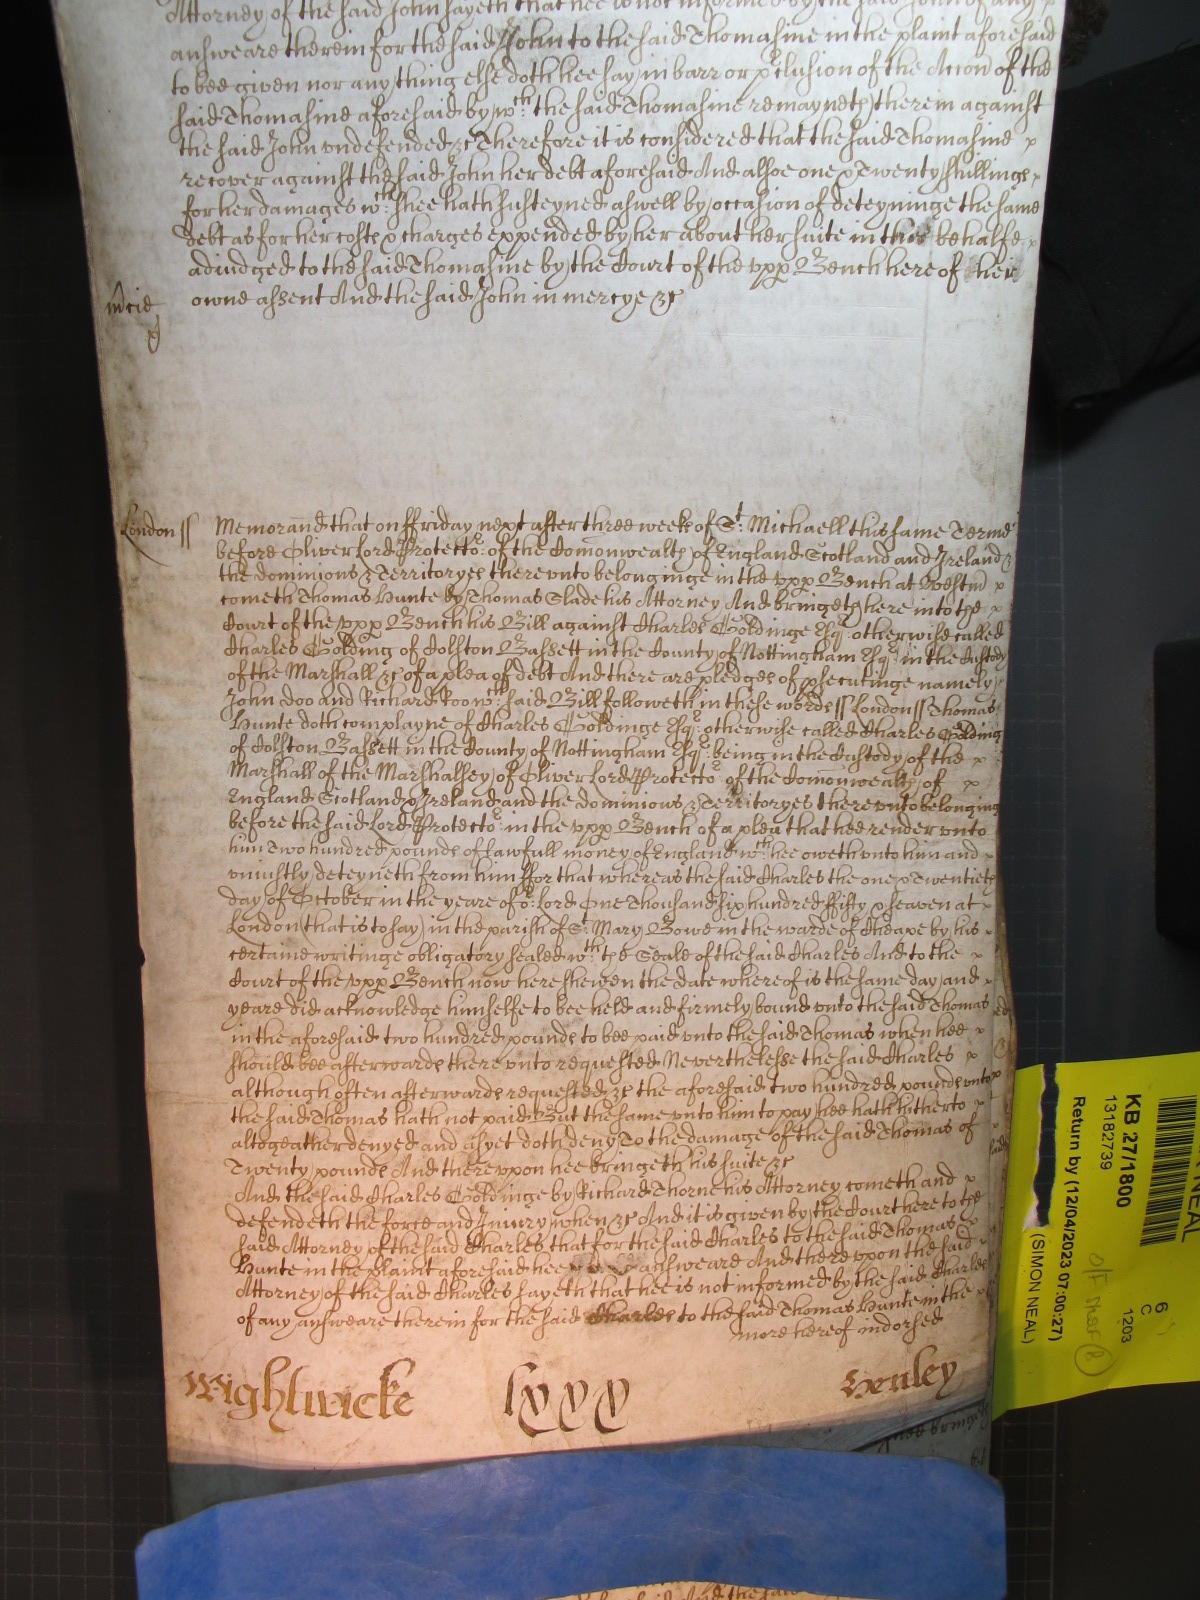 Attorney of the said John sayeth that hee is not informed by the said John of any
answeare therein for the said John to the said Thomasine in the plaint aforesaid
to bee given nor any thing else doth hee say in barr or p̱clusion of the Accon̄ of the
said Thomasine aforesaid by wch the said Thomasine remayneth therein against
the said John vndefended &c Therefore it is considered that the said Thomasine x
recover against the said John her debt aforesaid And alsoe one & Twenty shillings
for her damages wch shee hath susteyned aswell by occasion of deteyninge the same
debt as for her costs & charges expended by her about her suite in this behalfe x
adiudged to the said Thomasine by the Court of the vpp Bench here of their
mcie
owne assent And the said John in mercye &c
London ss
Memorand that on ffriday next after three weeks of St Michaell this same Terme
before Oliver Lord Protector of the Comonwealth of England Scotland and Ireland &
the dominions & Territoryes there vnto belonginge in the vpp Bench at Westm x
cometh Thomas Hunte by Thomas Slade his Attorney And bringeth here into the x
Court of the vpp Bench his Bill against Charles Goldinge Esqr otherwise called
Charles Golding of Colston Bassett in the County of Nottingham Esqr in the Custody
of the Marshall &c of a plea of debt And there are pledges of psecutinge namely
John Doo and Richard Roo wch said Bill followeth in these words ss London ss Thomas
Hunte doth complayne of Charles Goldinge Esqr otherwise called Charles Golding
of Colston Bassett in the County of Nottingham Esqr being in the Custody of the x
Marshall of the Marshalsey of Oliver Lord Protector of the Comonwealth of x
England Scotland & Ireland and the dominions & Territoryes there vnto belonging
before the said Lord Protector in the vpp Bench of a plea that hee render vnto
him Two hundred pounds of lawfull money of England wch hee oweth vnto him and
vniustly deteyneth from him ffor that whereas the said Charles the one & Twentieth
day of October in the yeare of or Lord One Thousand six hundred ffifty & seaven at
London (that is to say) in the parish of St Mary Bowe in the warde of Cheape by his
certaine writinge obligatory sealed wth the Seale of the said Charles And to the x
Court of the vpp Bench now here shewen the date whereof is the same day and
yeare did acknowledge himselfe to bee held and firmely bound vnto the said Thomas
in the aforesaid two hundred pounds to bee paid vnto the said Thomas when hee x
should bee afterwards there vnto requested Neverthelesse the said Charles x
although often afterwards requested &c the aforesaid two hundred pounds vnto
the said Thomas hath not paid But the same vnto him to pay hee hath hitherto
altogeather denyed and as yet doth deny To the damage of the said Thomas of
Twenty pounds And there vpon hee bringeth his suite &c
And the said Charles Goldinge by Richard Thorne his Attorney cometh and x
defendeth the force and Iniury when &c And it is given by the Court here to the
said Attorney of the said Charles that for the said Charles to the said Thomas x
Hunte in the plaint aforesaid hee answeare And there vpon the said
Attorney of the said Charles sayeth that hee is not informed by the said Charles
of any answeare therein for the said Charles to the said Thomas Hunte in the
more hereof indorsed
Wightwicke lxxx Henley
KB 27/1800
13182739
Return by (12/04/2023 07:00:27)
(SIMON NEAL)
6
C
1203